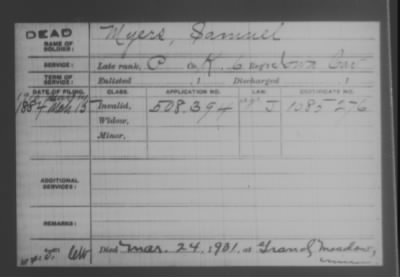 DEAD
NAME OF SOLDIER: Myers, Samuel
SERVICE: Late rank, C Co. K, 6 Reg't Iowa Cav
TERM OF SERVICE: Enlisted , 1 Discharged , 1
DATE OF FILING. CLASS. APPLICATION NO. LAW. CERTIFICATE NO.
1884 Mch 15 Invalid, 508.394 J 1085.276
Widow,
Minor,
ADDITIONAL SERVICES:
REMARKS:
Died Mar. 24, 1901, at Grand Meadow,
Minn